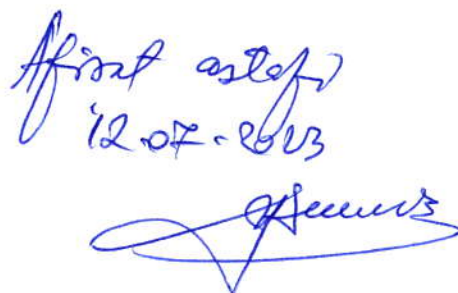 Afisat astăzi
12.07.2023